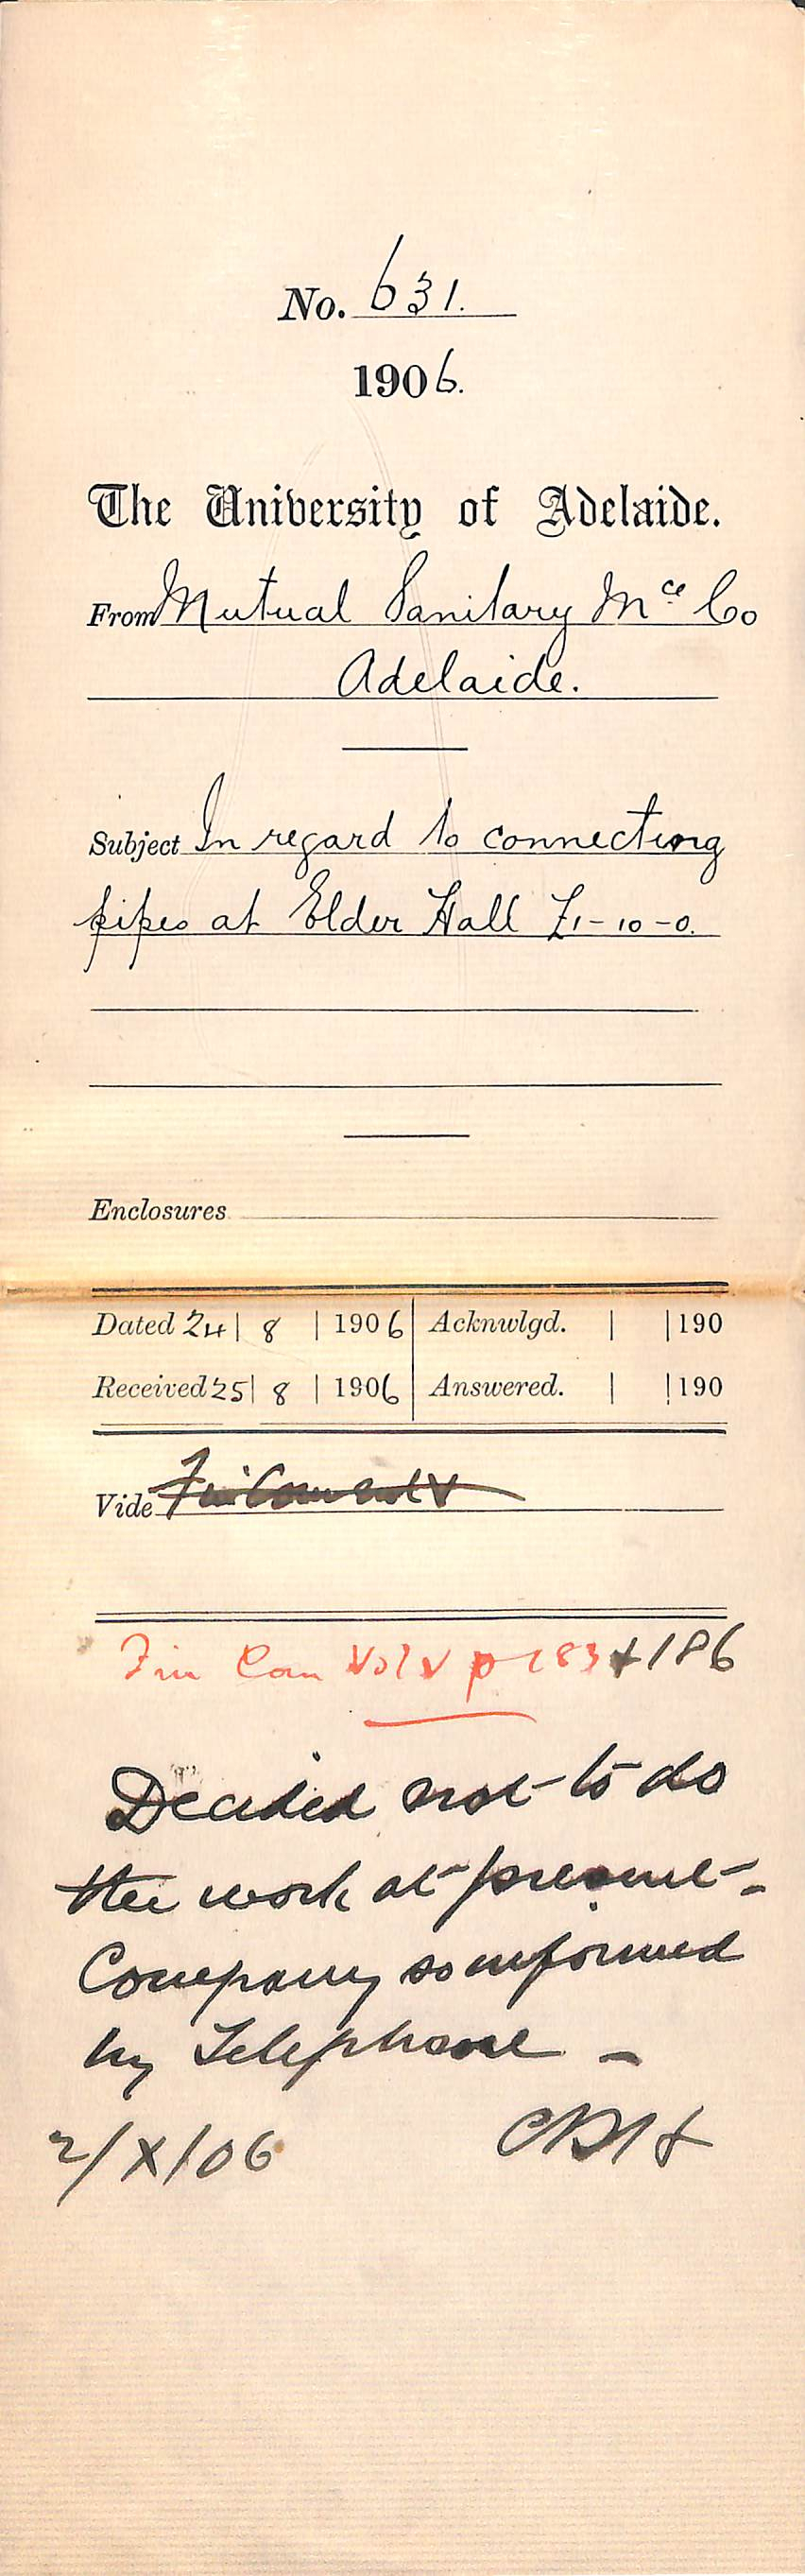 No. 631.
1906.
The University of Adelaide.
From Mutual Sanitary Mce Co
Adelaide.
Subject In regard to connecting
pipes at Elder Hall £1-10-0.
Enclosures
Dated 24 | 8 | 1906 Acknwlgd. | | 190
Received 25 | 8 | 1906 Answered. | | 190
Vide
Fin Com Vol V p 183 + 186
Decided not to do
the work at present -
Company so informed
by Telephone -
2/X/06 CRH